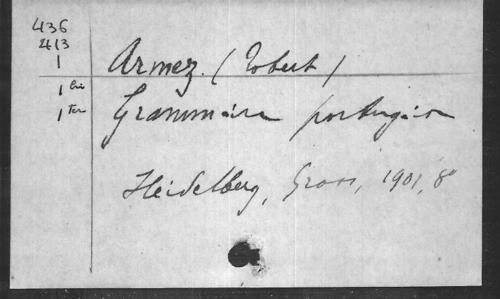 436
413
1
Armez. (Robert)
1 bis
1 Ter
Grammaire portugaise
Heidelberg, Groos, 1901, 8°